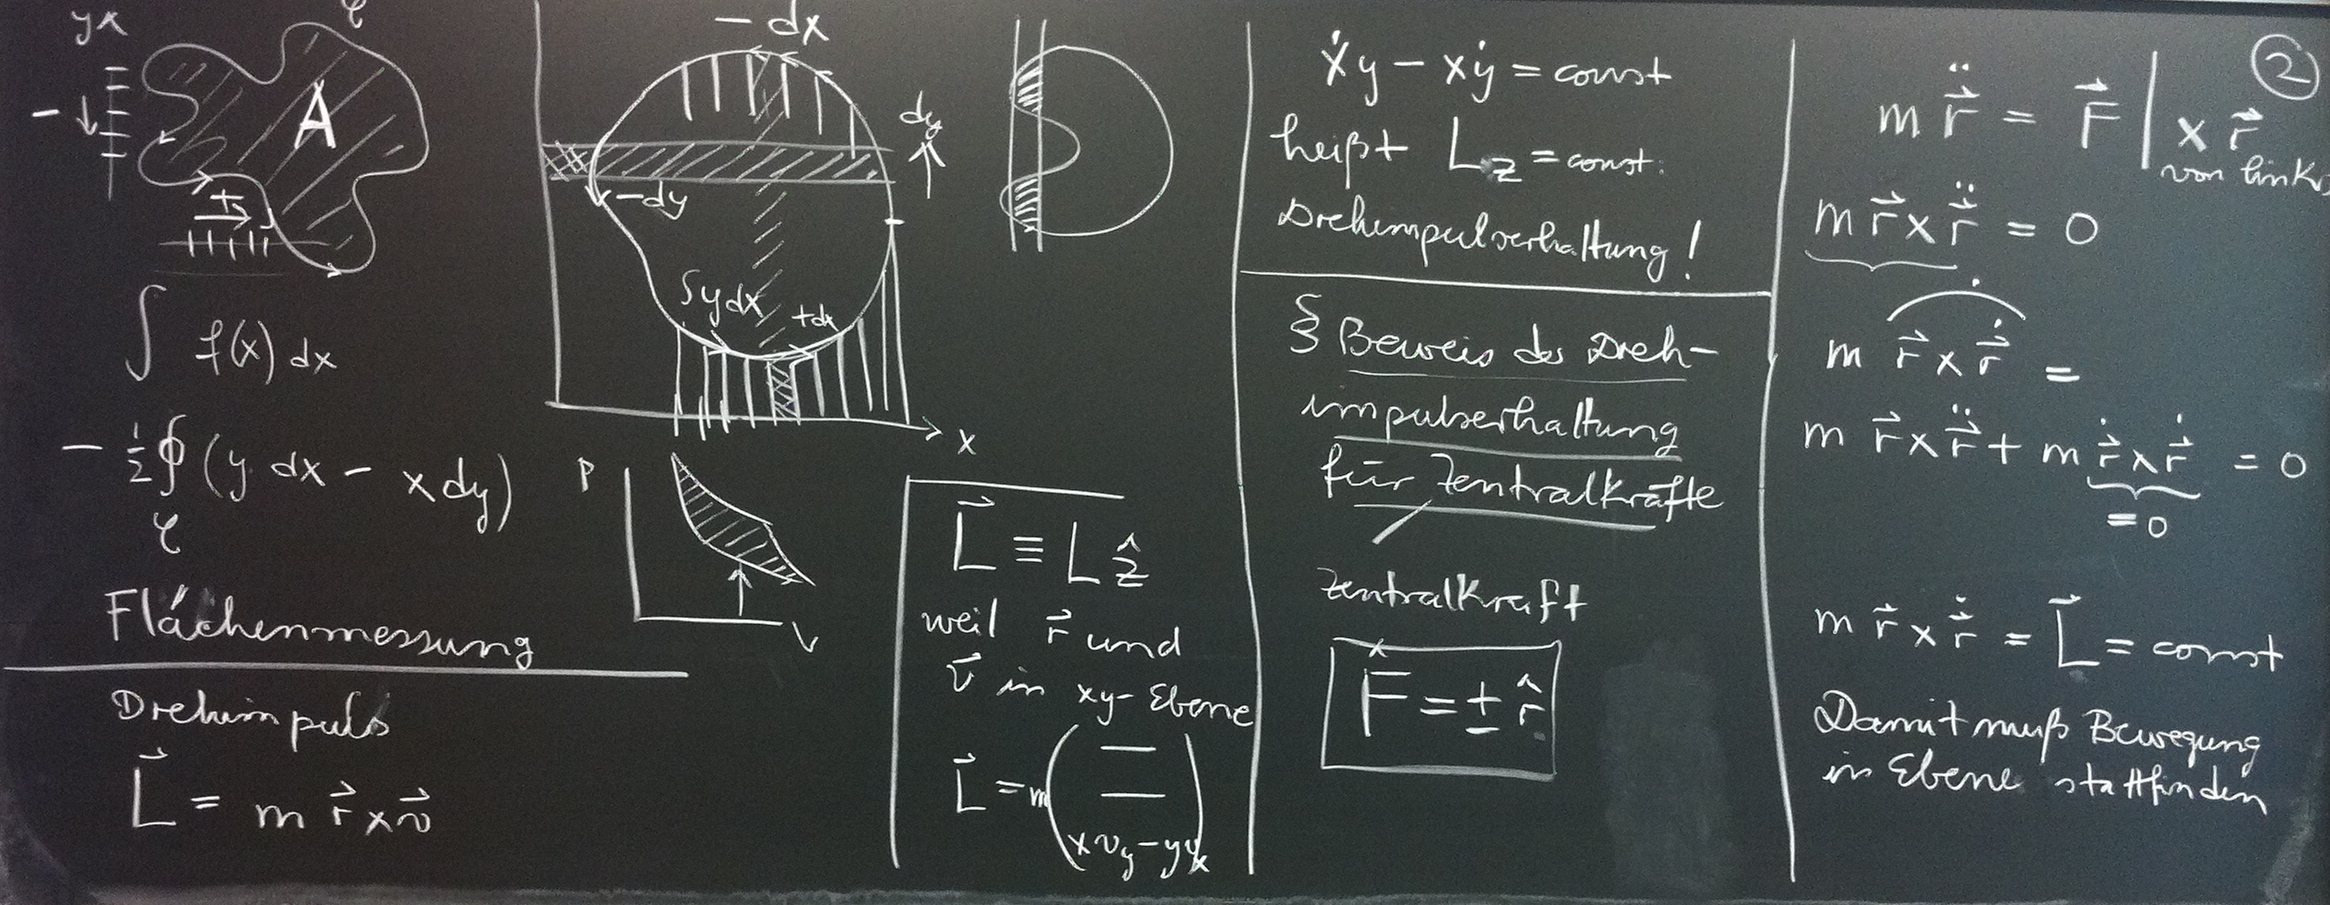 yx
C
A
−
+
∫ f(x) dx
− ½ ∮ (y dx − x dy)
C
Flächenmessung
Drehimpuls
L⃗ = m r⃗ × v⃗
− dx
dy
−dy
∫y dx
+dx
x
P
V
L⃗ ≡ L ẑ
weil r⃗ und
v⃗ in xy-Ebene
L⃗ = m ( — — x v_y − y v_x )
ẋy − xẏ = const
heißt L_z = const.
Drehimpulserhaltung!
§ Beweis des Dreh-
impulserhaltung
für Zentralkräfte
Zentralkraft
F⃗ = ± r̂
②
m r⃗̈ = F⃗ | × r⃗
von links
m r⃗ × r⃗̈ = 0
m r⃗ × r⃗̇ =
m r⃗ × r⃗̈ + m r⃗̇ × r⃗̇ = 0
= 0
m r⃗ × r⃗̇ = L⃗ = const
Damit muß Bewegung
in Ebene stattfinden